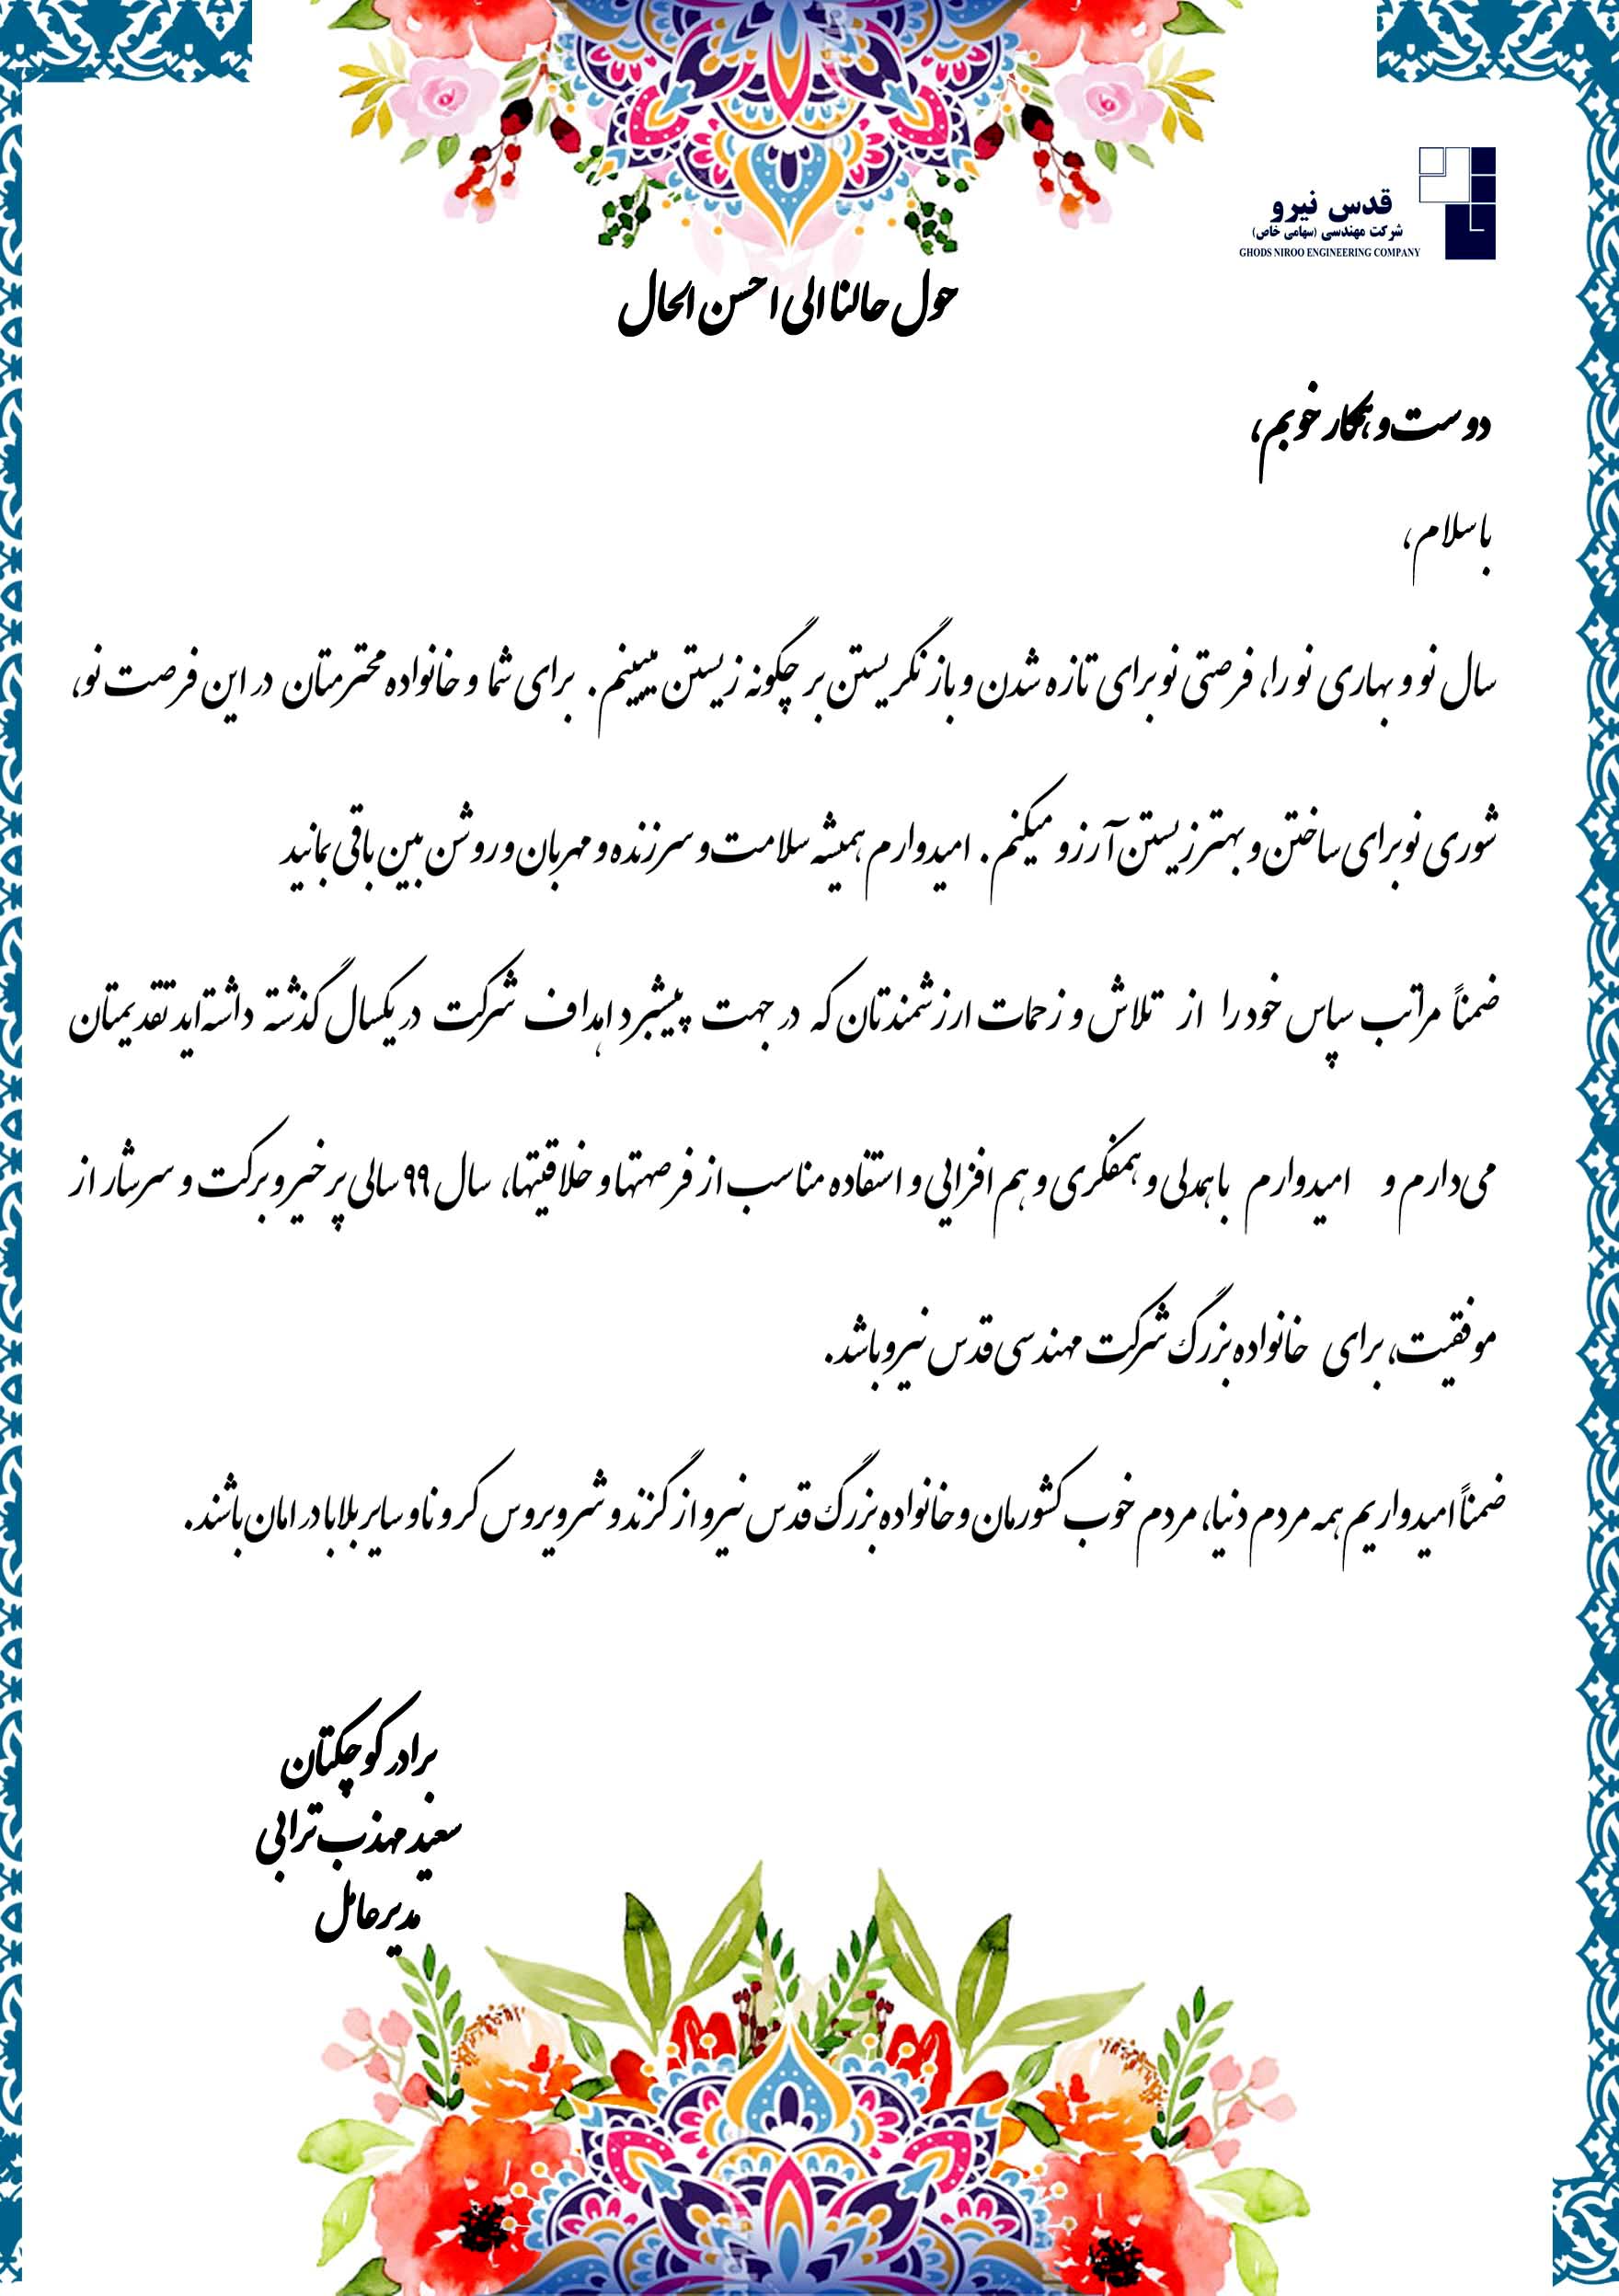 قدس نیرو
شرکت مهندسی (سهامی خاص)
GHODS NIROO ENGINEERING COMPANY
حول حالنا الی احسن الحال
دوست و همکار خوبم،
با سلام،
سال نو و بهاری نو را، فرصتی نو برای تازه شدن و باز نگریستن بر چگونه زیستن میبینم. برای شما و خانواده محترمتان در این فرصت نو،
شوری نو برای ساختن و بهتر زیستن آرزو میکنم. امیدوارم همیشه سلامت و سرزنده و مهربان و روشن بین باقی بمانید
ضمناً مراتب سپاس خود را از تلاش و زحمات ارزشمندتان که در جهت پیشبرد اهداف شرکت در یکسال گذشته داشته‌اید تقدیمتان
می‌دارم و امیدوارم با همدلی و همفکری و هم افزایی و استفاده مناسب از فرصتها و خلاقیتها، سال ۹۹ سالی پر خیر و برکت و سرشار از
موفقیت، برای خانواده بزرگ شرکت مهندسی قدس نیرو باشد.
ضمناً امیدواریم همه مردم دنیا، مردم خوب کشورمان و خانواده بزرگ قدس نیرو از گزند و شر ویروس کرونا و سایر بلایا در امان باشند.
برادر کوچکتان
سعید مهذب ترابی
مدیرعامل